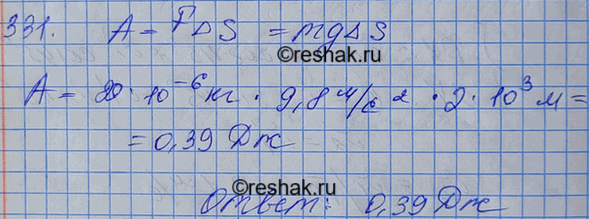 331. A = FΔS = mgΔS
©reshak.ru
A = 20 · 10⁻⁶ кг · 9,8 м/с² · 2 · 10³ м =
= 0,39 Дж
©reshak.ru
Ответ: 0,39 Дж